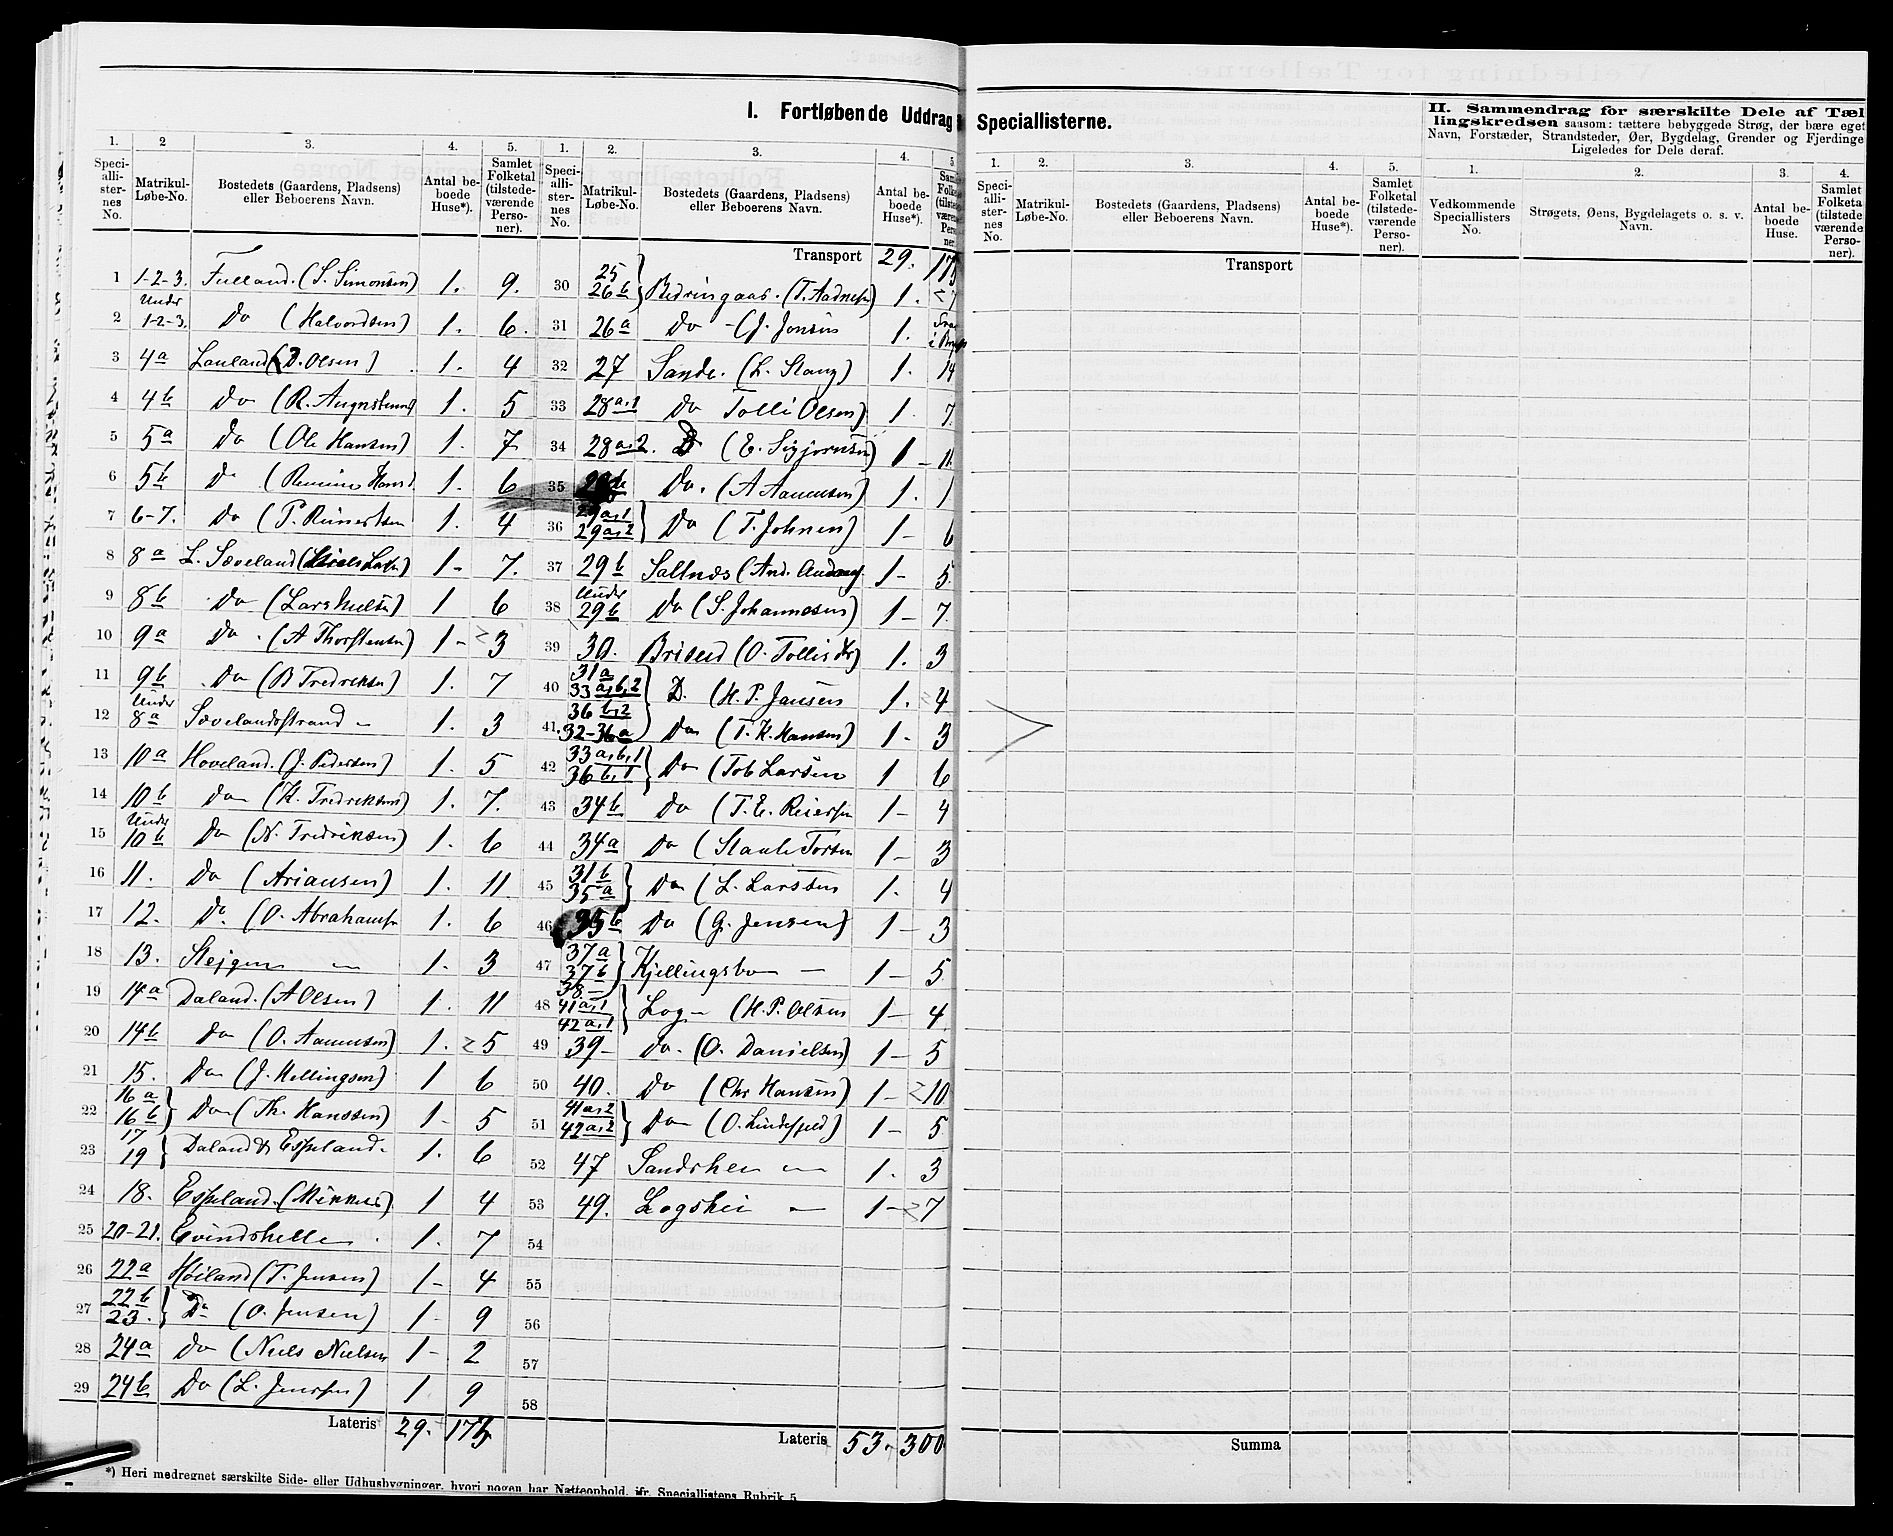 I. Fortløbende Uddrag
Speciallisterne.
II. Sammendrag for særskilte Dele af Tæl
lingskredsen saasom: tættere bebyggede Strøg, der bære eget
Navn, Forstæder, Strandsteder, Øer, Bygdelag, Grender og Fjerdinge
Ligeledes for Dele deraf.
1. 2 3. 4. 5. 1. 2. 3. 4. 5
Speciallisternes No. Matrikul-Løbe-No. Bostedets (Gaardens, Pladsens) eller Beboerens Navn. Antal beboede Huse*). Samlet Folketal (tilstedeværende Personer).
Speciallisternes No. Matrikul-Løbe-No. Bostedets (Gaardens, Pladsens) eller Beboerens Navn. Antal beboede Huse*).
1 1-2-3. (S. Simonsen) 1. 9.
2 Under 1-2-3. Do (Halvordsen) 1. 6.
3 4a Lauland (D. Olsen) 1. 4
4 4b Do (R. 1. 5
5 5a Do (Ole Hansen) 1. 7
6 5b Do 1. 6
7 6-7. Do (P. Reinertsen 1. 4
8 8a L. Sæveland 1- 7.
9 8b Do 1 6
10 9a Do. (A Thorstensen) 1- 3
11 9b Do (B Fredriksen) 1. 7
12 Under 8a Sævelandsstrand 1. 3
13 10a Hoveland. (J. Pedersen) 1. 5
14 10b Do (K. Fredriksen) 1. 7.
15 Under 10b Do (N. Fredriksen) 1. 6
16 11. Do (Ariansen) 1. 11
17 12. Do (O. Abrahams 1. 6
18 13. 1. 3
19 14a Daland. (A Olsen) 1. 11
20 14b Do (O. Aanensen) 1. 5
21 15. Do (J. Kellingsen) 1 6
22 16a 16b Do (Th. Hanssen) 1- 5
23 17 19 Daland & Espeland. 1. 6
24 18. Espeland. 1 4
25 20-21. Evindshelle. 1. 7
26 22a Høiland (T. Jensen) 1- 4
27 22b 23. Do (O. Jensen) 1- 9
28 24a Do (Niels Nielsen 1- 2
29 24b Do (L. Jenssen) 1 9
Lateris 29. 175
Transport 29. 175
30 25 26b (T. Aadnesen) 1. 7
31 26a Do (J. Jensen 1.
32 27 Sande. (L. Stang) 1. 14
33 28a,1 Do Tolli Olsen) 1. 7
34 28a,2. Do (E. Sigjornsen) 1 11
35 28b Do. (A Aanensen) 1. 1
36 29a,1 29a,2 Do (T. Johnsen) 1- 6
37 29b Saltnæs 1- 5
38 Under 29b Do (S. Johannesen) 1- 7
39 30. Briseid 1. 3
40 31a 33a,b,2 36b,2 Do. (H. P. Jansen 1. 4
41. 32-36a Do (T. K. Hansen) 1- 3
42 33a,b,1 36b,1 Do (Tob Larsen 1 6
43 34b Do (T. E. Reiersen 1- 4
44 34a Do 1- 3
45 31b 35a Do (L. Larssen 1. 4
46 35b Do (G. Jensen) 1- 3
47 37a 37b Kjellingsbo 1- 5
48 38- 41a,1 42a,1 Log (H. P. Olsen 1- 4
49 39- Do. (O. Danielsen) 1- 5
50 40. Do (Chr Hansen) 1- 10
51 41a,2 42a,2 Do (O. 1- 5
52 47 Sandshei 1. 3
53 49. Logshei 1- 7
54
55
56
57
58
Lateris 53. 300
*) Heri medregnet særskilte Side- eller Udhusbygninger, hvori nogen har Natteophold, jfr. Speciallistens Rubrik 5.
1. 2. 3. 4. 5.
Speciallisternes No. Matrikul-Løbe-No. Bostedets (Gaardens, Pladsens) eller Beboerens Navn. Antal beboede Huse*). Samlet Folketal (tilstedeværende Personer).
Transport
Summa
1. 2. 3. 4.
Vedkommende Speciallisters No. Strøgets, Øens, Bygdelagets o. s. v. Navn. Antal beboede Huse. Samlet Folketa (tilstede værende Personer).